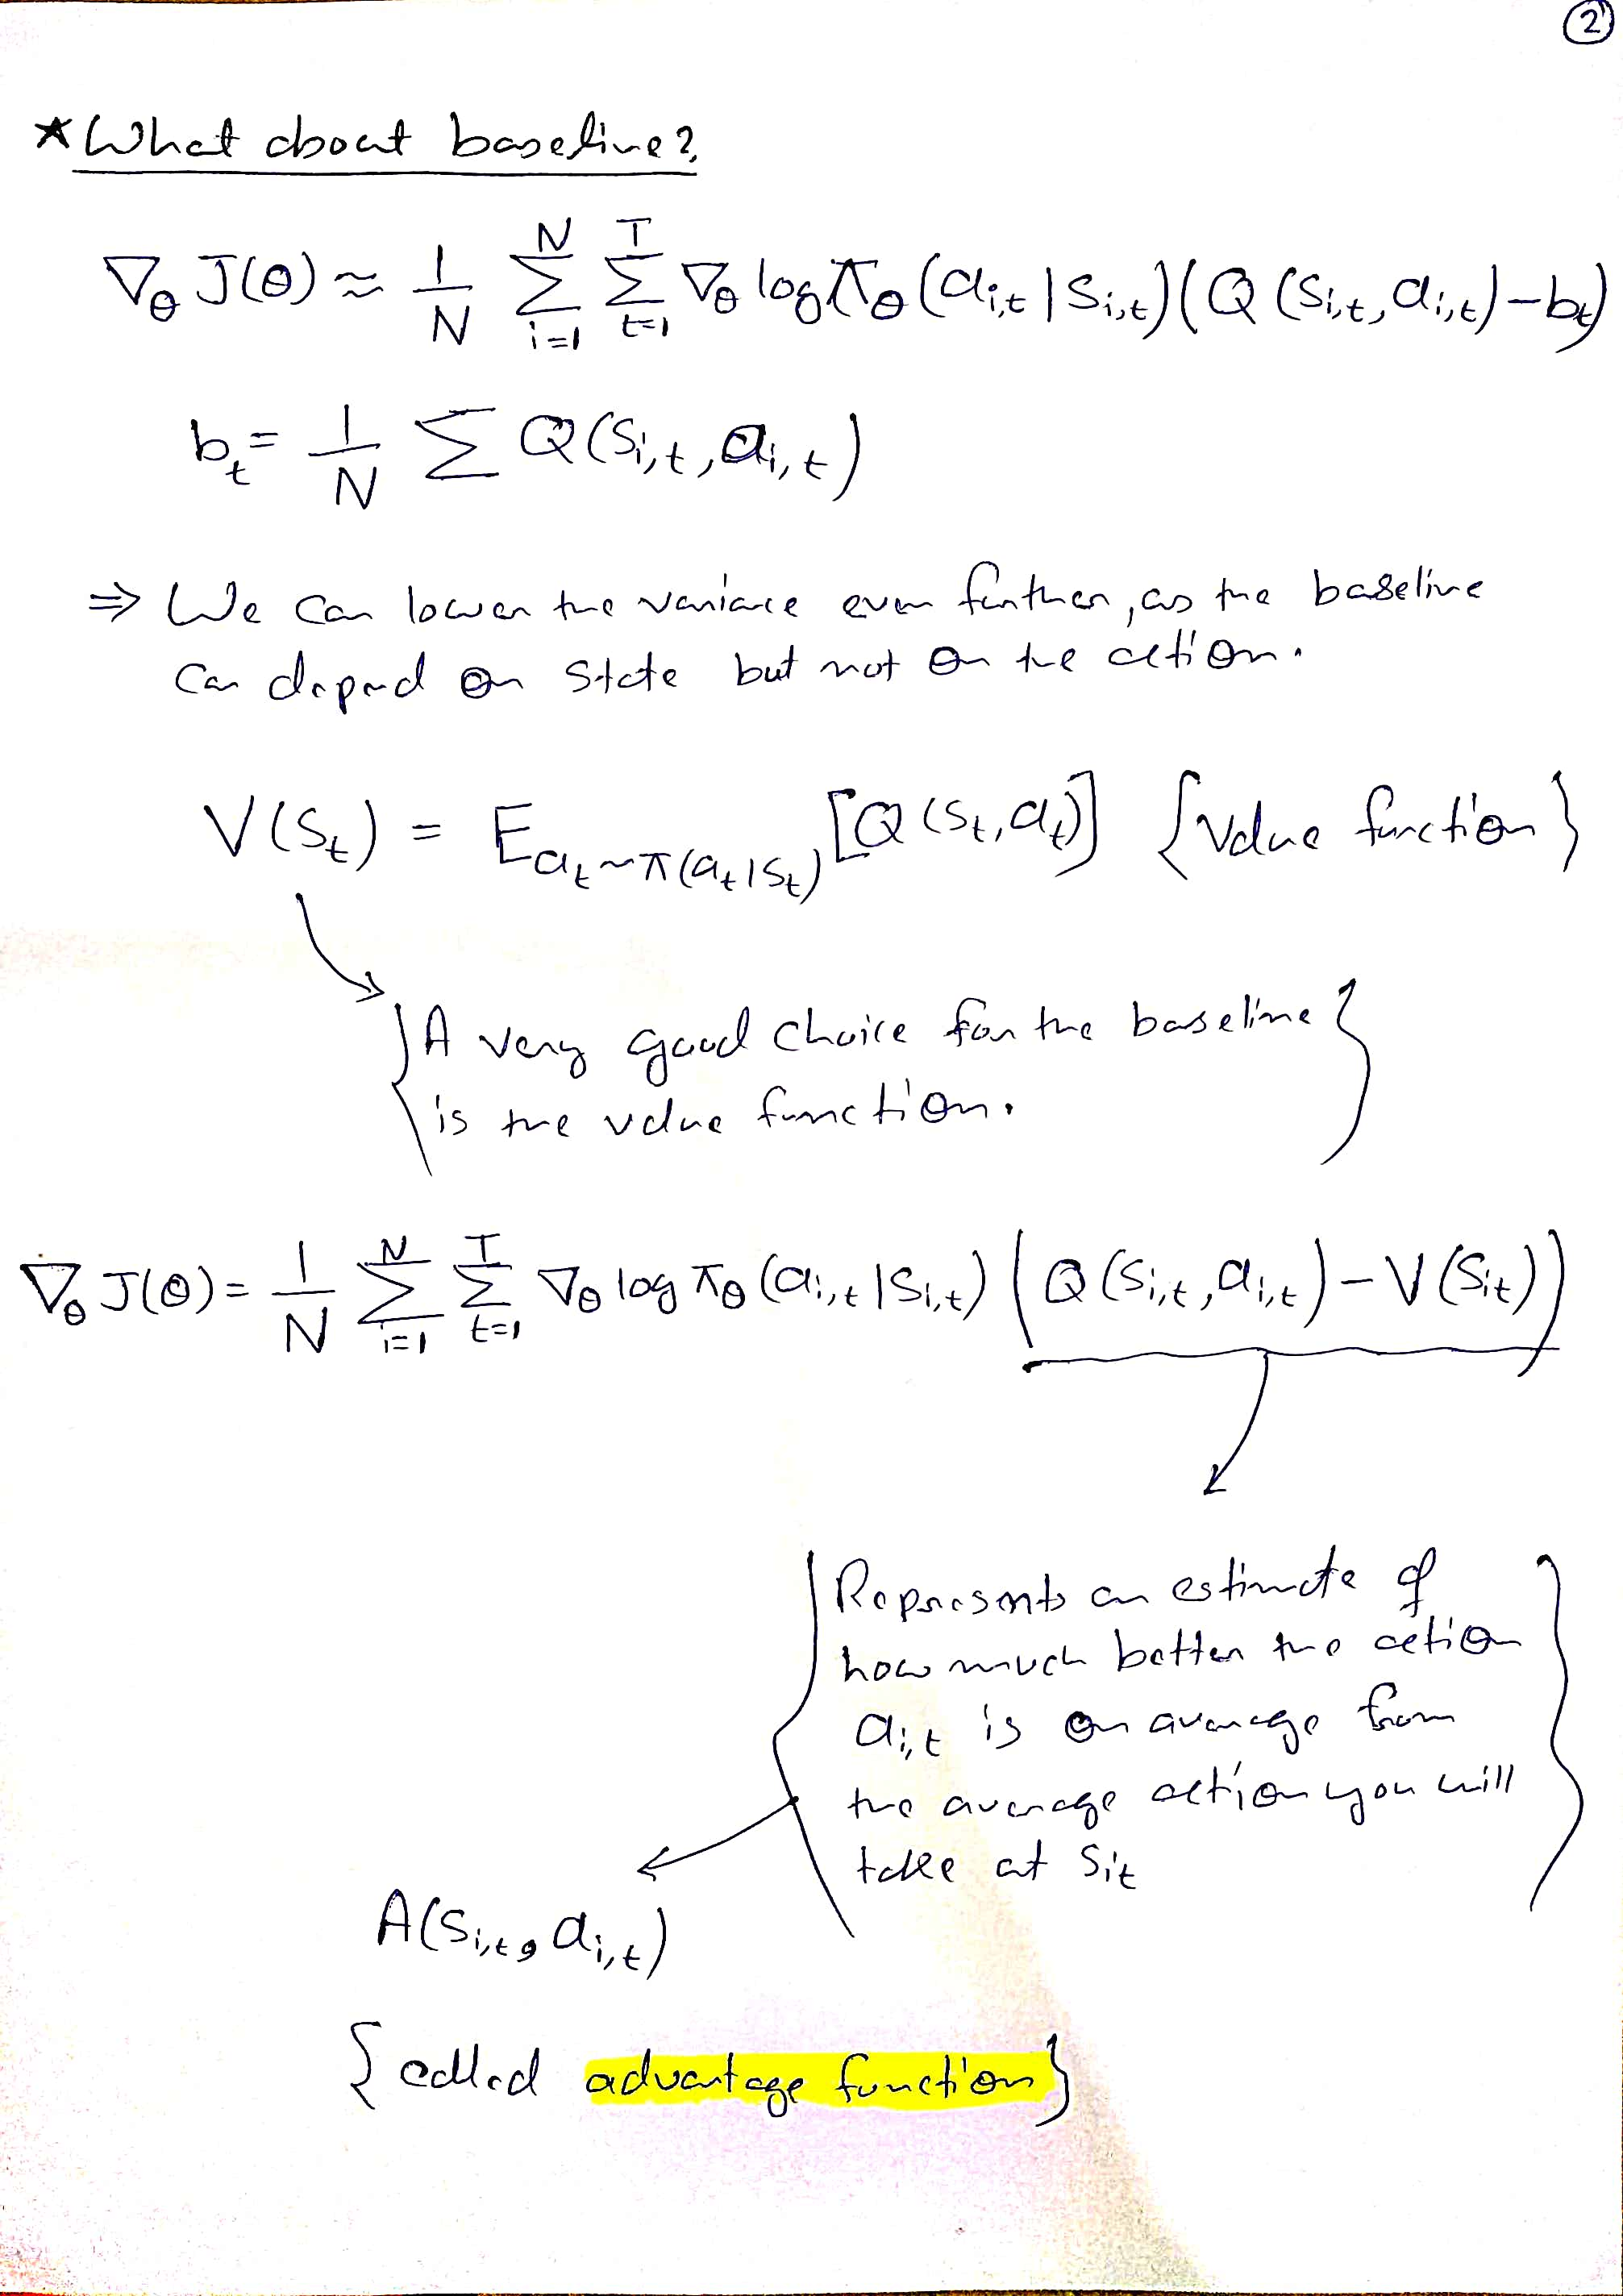 ②
* What about baseline?
∇_θ J(θ) ≈ 1/N Σ_{i=1}^{N} Σ_{t=1}^{T} ∇_θ log π_θ (a_{i,t} | s_{i,t}) (Q (s_{i,t}, a_{i,t}) − b_t)
b_t = 1/N Σ Q(s_{i,t}, a_{i,t})
⇒ We can lower the variance even further, as the baseline
can depend on state but not on the action.
V(s_t) = E_{a_t ~ π(a_t|s_t)} [Q(s_t, a_t)] {value function}
{A very good choice for the baseline
is the value function.}
∇_θ J(θ) = 1/N Σ_{i=1}^{N} Σ_{t=1}^{T} ∇_θ log π_θ (a_{i,t} | s_{i,t}) (Q(s_{i,t}, a_{i,t}) − V(s_{it}))
{Represents an estimate of
how much better the action
a_{i,t} is on average from
the average action you will
take at s_{it}}
A(s_{i,t}, a_{i,t})
{called advantage function}